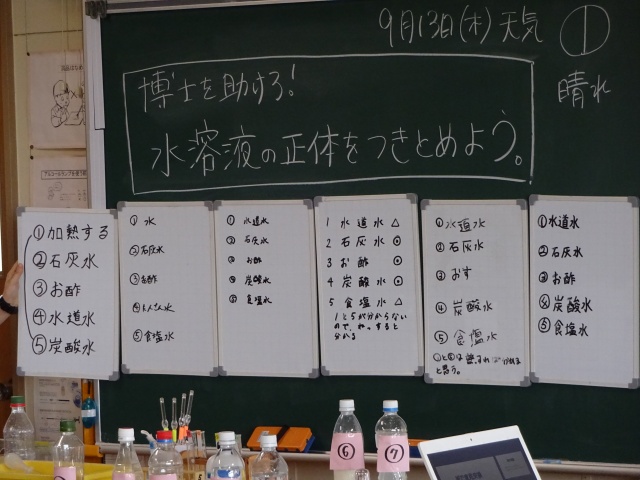 9月13日(木)天気
①
晴れ
博士を助けろ!
水溶液の正体をつきとめよう。
①加熱する
②石灰水
③お酢
④水道水
⑤炭酸水
①水
②石灰水
③お酢
⑤食塩水
①水道水
②石灰水
③お酢
④炭酸水
⑤食塩水
1 水道水△
2 石灰水⊙
3 お酢⊙
4 炭酸水⊙
5 食塩水△
1と5が分からない
分かる
①水道水
②石灰水
③おす
④炭酸水
⑤食塩水
と思う。
①水道水
②石灰水
③お酢
④炭酸水
⑤食塩水
⑥
⑦